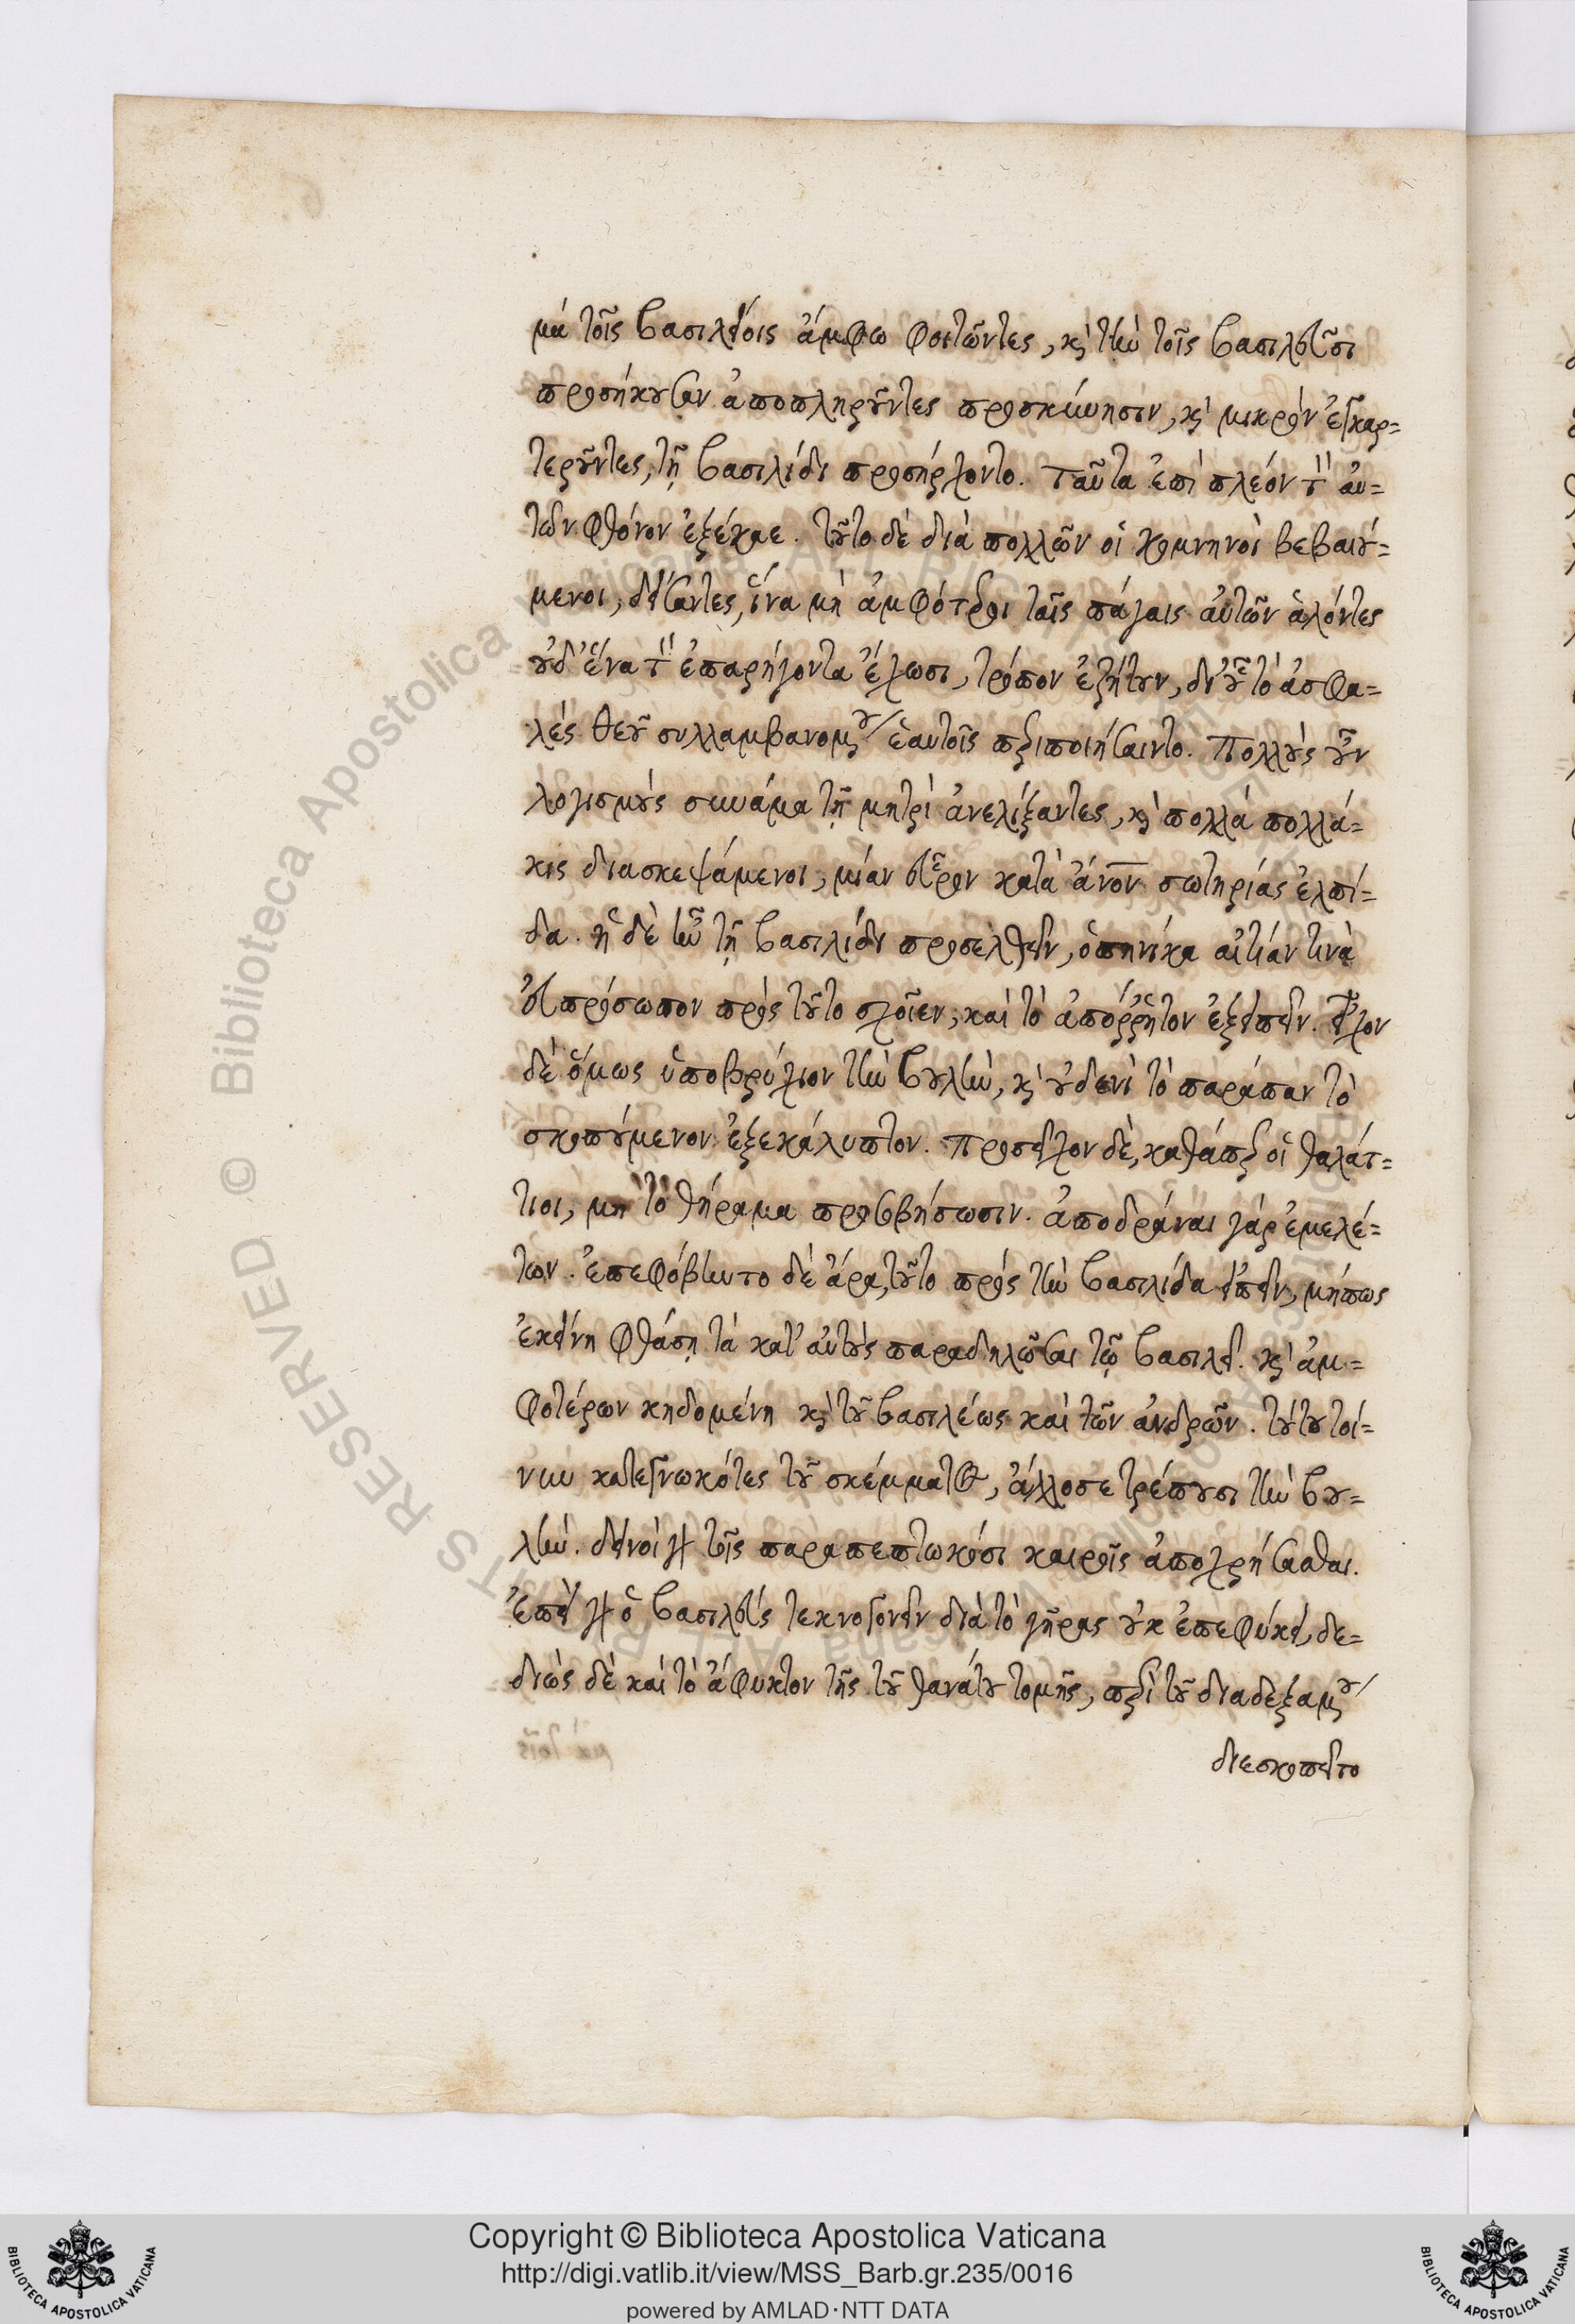 μα τοῖς βασιλείοις ἄμφω φοιτῶντες, κ̀ τὴν τοῖς βασιλεῦσι
προσήκουσαν ἀποπληροῦντες προσκύνησιν, κ̀ μικρὸν ἐγκαρ=
τεροῦντες, τῇ βασιλίδι προσήρχοντο. Ταῦτα ἐπὶ πλέον τ̀ αὐ=
τῶν φθόνον ἐξέκαε. τοῦτο δὲ διὰ πολλῶν οἱ κομνηνοὶ βεβαιού=
μενοι, δείσαντες, ἵνα μὴ ἀμφότεροι ταῖς πάγαις αὐτῶν ἁλόντες
οὐδ' ἕνα τ̀ ἐπαρήγοντα ἔχωσι, τρόπον ἐζήτουν, δι' οὗ τὸ ἀσφα=
λὲς θεοῦ συλλαμβανομου ἑαυτοῖς περιποιήσαιντο. Πολλοὺς οὖν
λογισμοὺς συνάμα τῇ μητρὶ ἀνελίξαντες, κ̀ πολλὰ πολλά=
κις διασκεψάμενοι, μίαν εὗρον κατὰ ἄνον σωτηρίας ἐλπί=
δα. ἡ δὲ ἦν τῇ βασιλίδι προσελθεῖν, ὁπηνίκα αἰτίαν τινὰ
εὐπρόσωπον πρὸς τοῦτο σχοῖεν, καὶ τὸ ἀπόῤῥητον ἐξειπεῖν. εἶχον
δὲ ὅμως ὑποβρύχιον τὴν βουλὴν, κ̀ οὐδενὶ τὸ παράπαν τὸ
σκοπούμενον ἐξεκάλυπτον. Προσεῖχον δὲ, καθάπερ οἱ θαλάτ=
τιοι, μὴ τὸ θήραμα προσβήσωσιν. ἀποδράναι γὰρ ἐμελέ=
των. ἐπεφόβηντο δὲ ἄρα, τοῦτο πρὸς τὴν βασιλίδα εἰπεῖν, μήπως
ἐκείνη φθάσῃ τὰ κατ' αὐτοὺς παραδηλῶσαι τῷ βασιλεῖ. κ̀ ἀμ=
φοτέρων κηδομένη κ̀ τοῦ βασιλέως καὶ τῶν ἀνδρῶν. τούτου τοί=
νυν κατεγνωκότες τοῦ σκέμματος, ἄλλοσε τρέπουσι τὴν βου=
λήν. δεινοὶ γὰρ τοῖς παραπεπτωκόσι καιροῖς ἀποχρήσασθαι.
ἐπεὶ γὰρ ὁ βασιλεὺς τεκνογονεῖν διὰ τὸ γῆρας οὐκ ἐπεφύκει, δε=
διὼς δὲ καὶ τὸ ἄφυκτον τῆς τοῦ θανάτου τομῆς, περὶ τοῦ διαδεξαμου
διεσκοπεῖτο
Copyright © Biblioteca Apostolica Vaticana
http://digi.vatlib.it/view/MSS_Barb.gr.235/0016
powered by AMLAD·NTT DATA